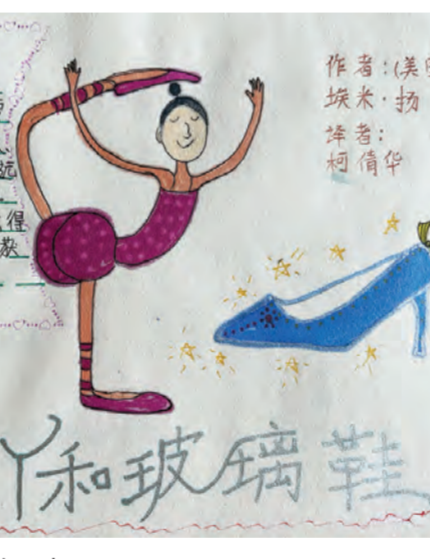 作者:(美
埃米·扬
译者:
柯倩华
得
丫和玻璃鞋